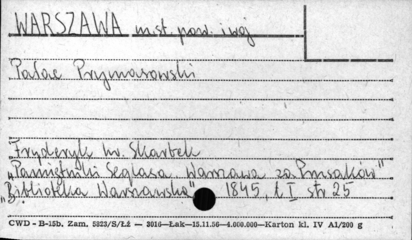 WARSZAWA m.st. pow. i woj
Pałac Prymasowski
Fryderyk hr. Skarbek
„Pamiętniki Seglasa. Warszawa za Prusaków"
„Biblioteka Warszawska" 1845, t. I str 25
CWD - B-15b. Zam. 5823/S/Łż — 3016—Łak—15.11.56—4.000.000—Karton kl. IV A1/200 g